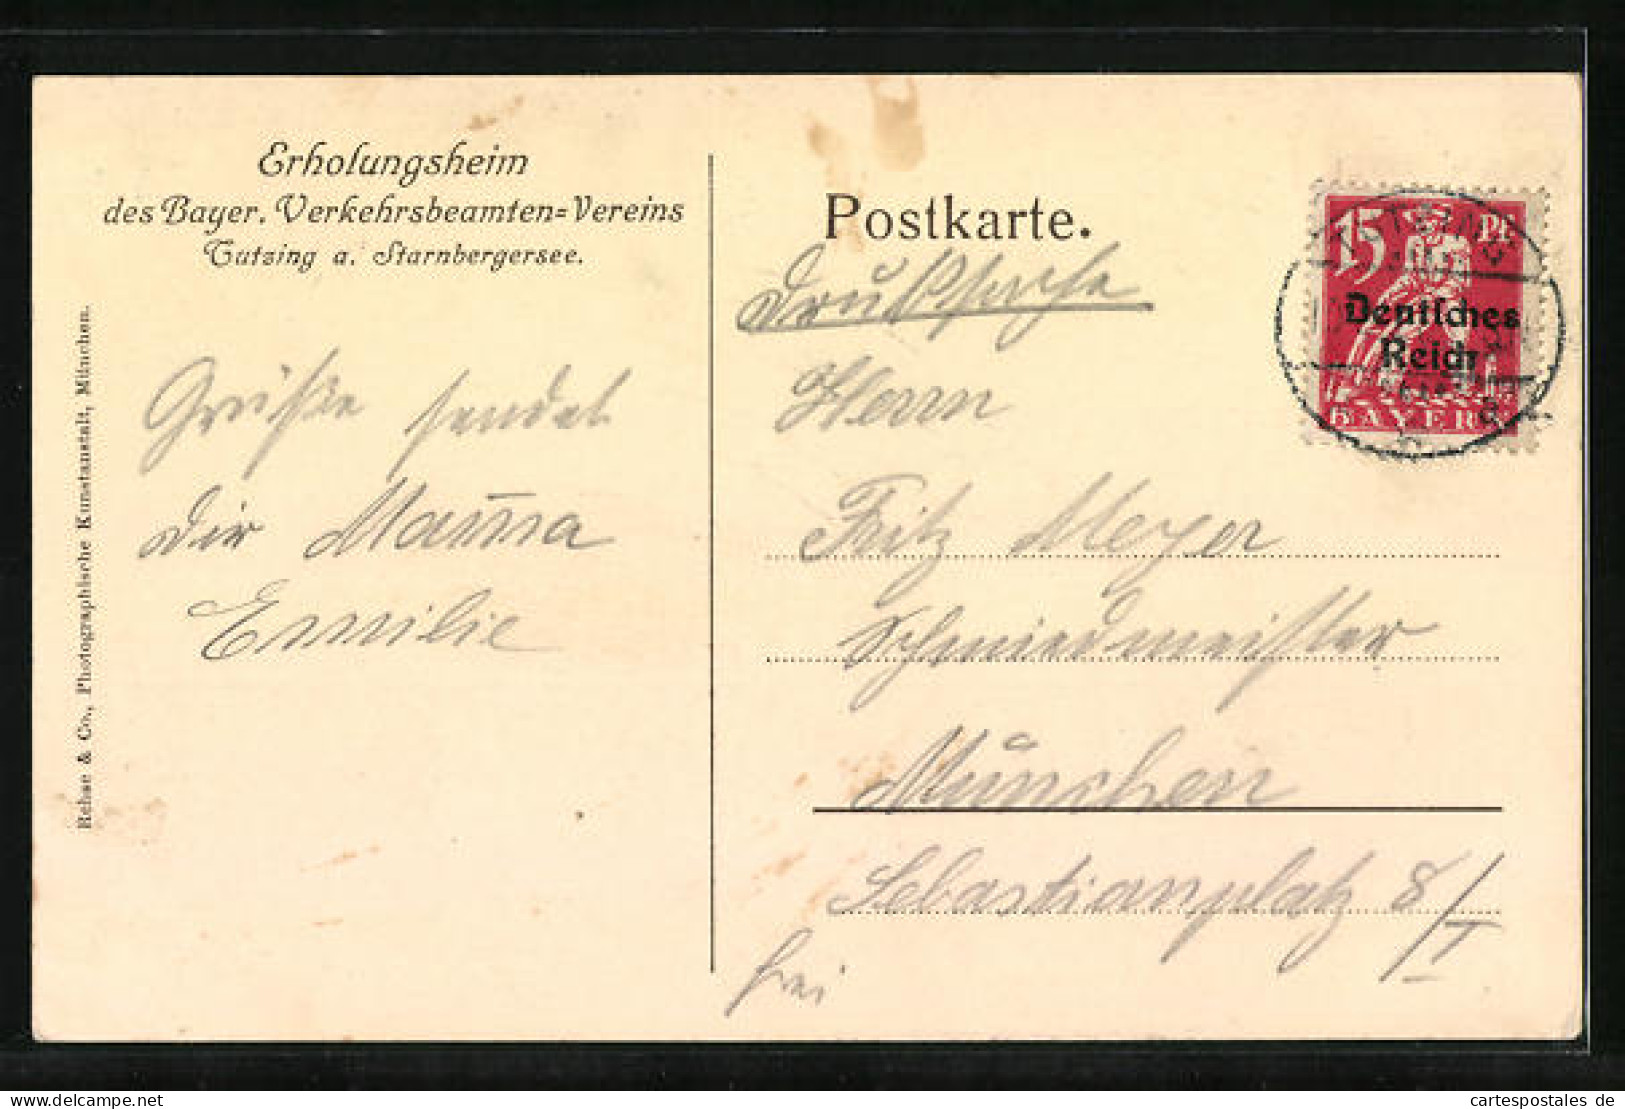 Erholungsheim
des Bayer. Verkehrsbeamten=Vereins
Tutzing a. Starnbergersee.
Rehse & Co., Photographische Kunstanstalt, München.
Grüße sendet
dir Mam̄a
Emilie
Postkarte.
Drucksache
Herrn
Fritz Meyer
Schmiedmeister
München
Sebastianplatz 8/I
frei
15 Pf
Deutsches
Reich
BAYERN
TUTZING
cartespostales de